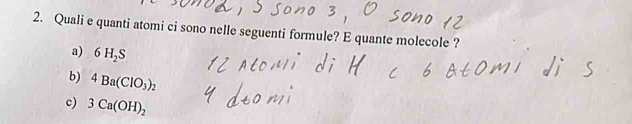 , S sono 3, O sono 12
2. Quali e quanti atomi ci sono nelle seguenti formule? E quante molecole ?
a) 6 H₂S 12 Atomi di H e 6 Atomi di S
b) 4 Ba(ClO₃)₂ 4 atomi
c) 3 Ca(OH)₂